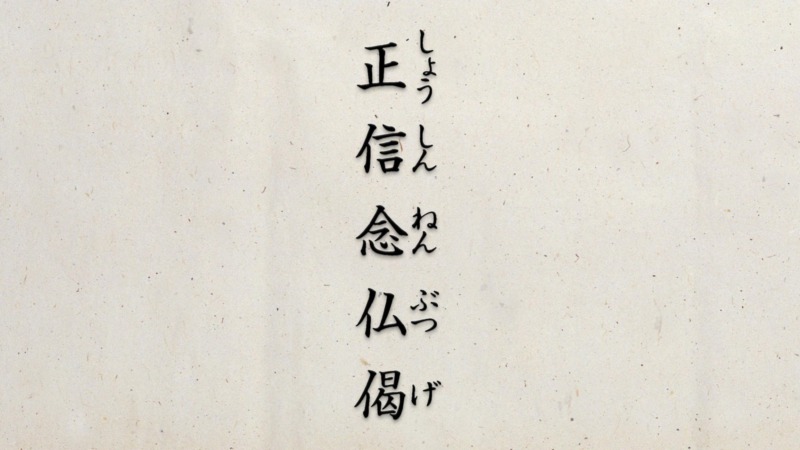 正信念仏偈
しょうしんねんぶつげ